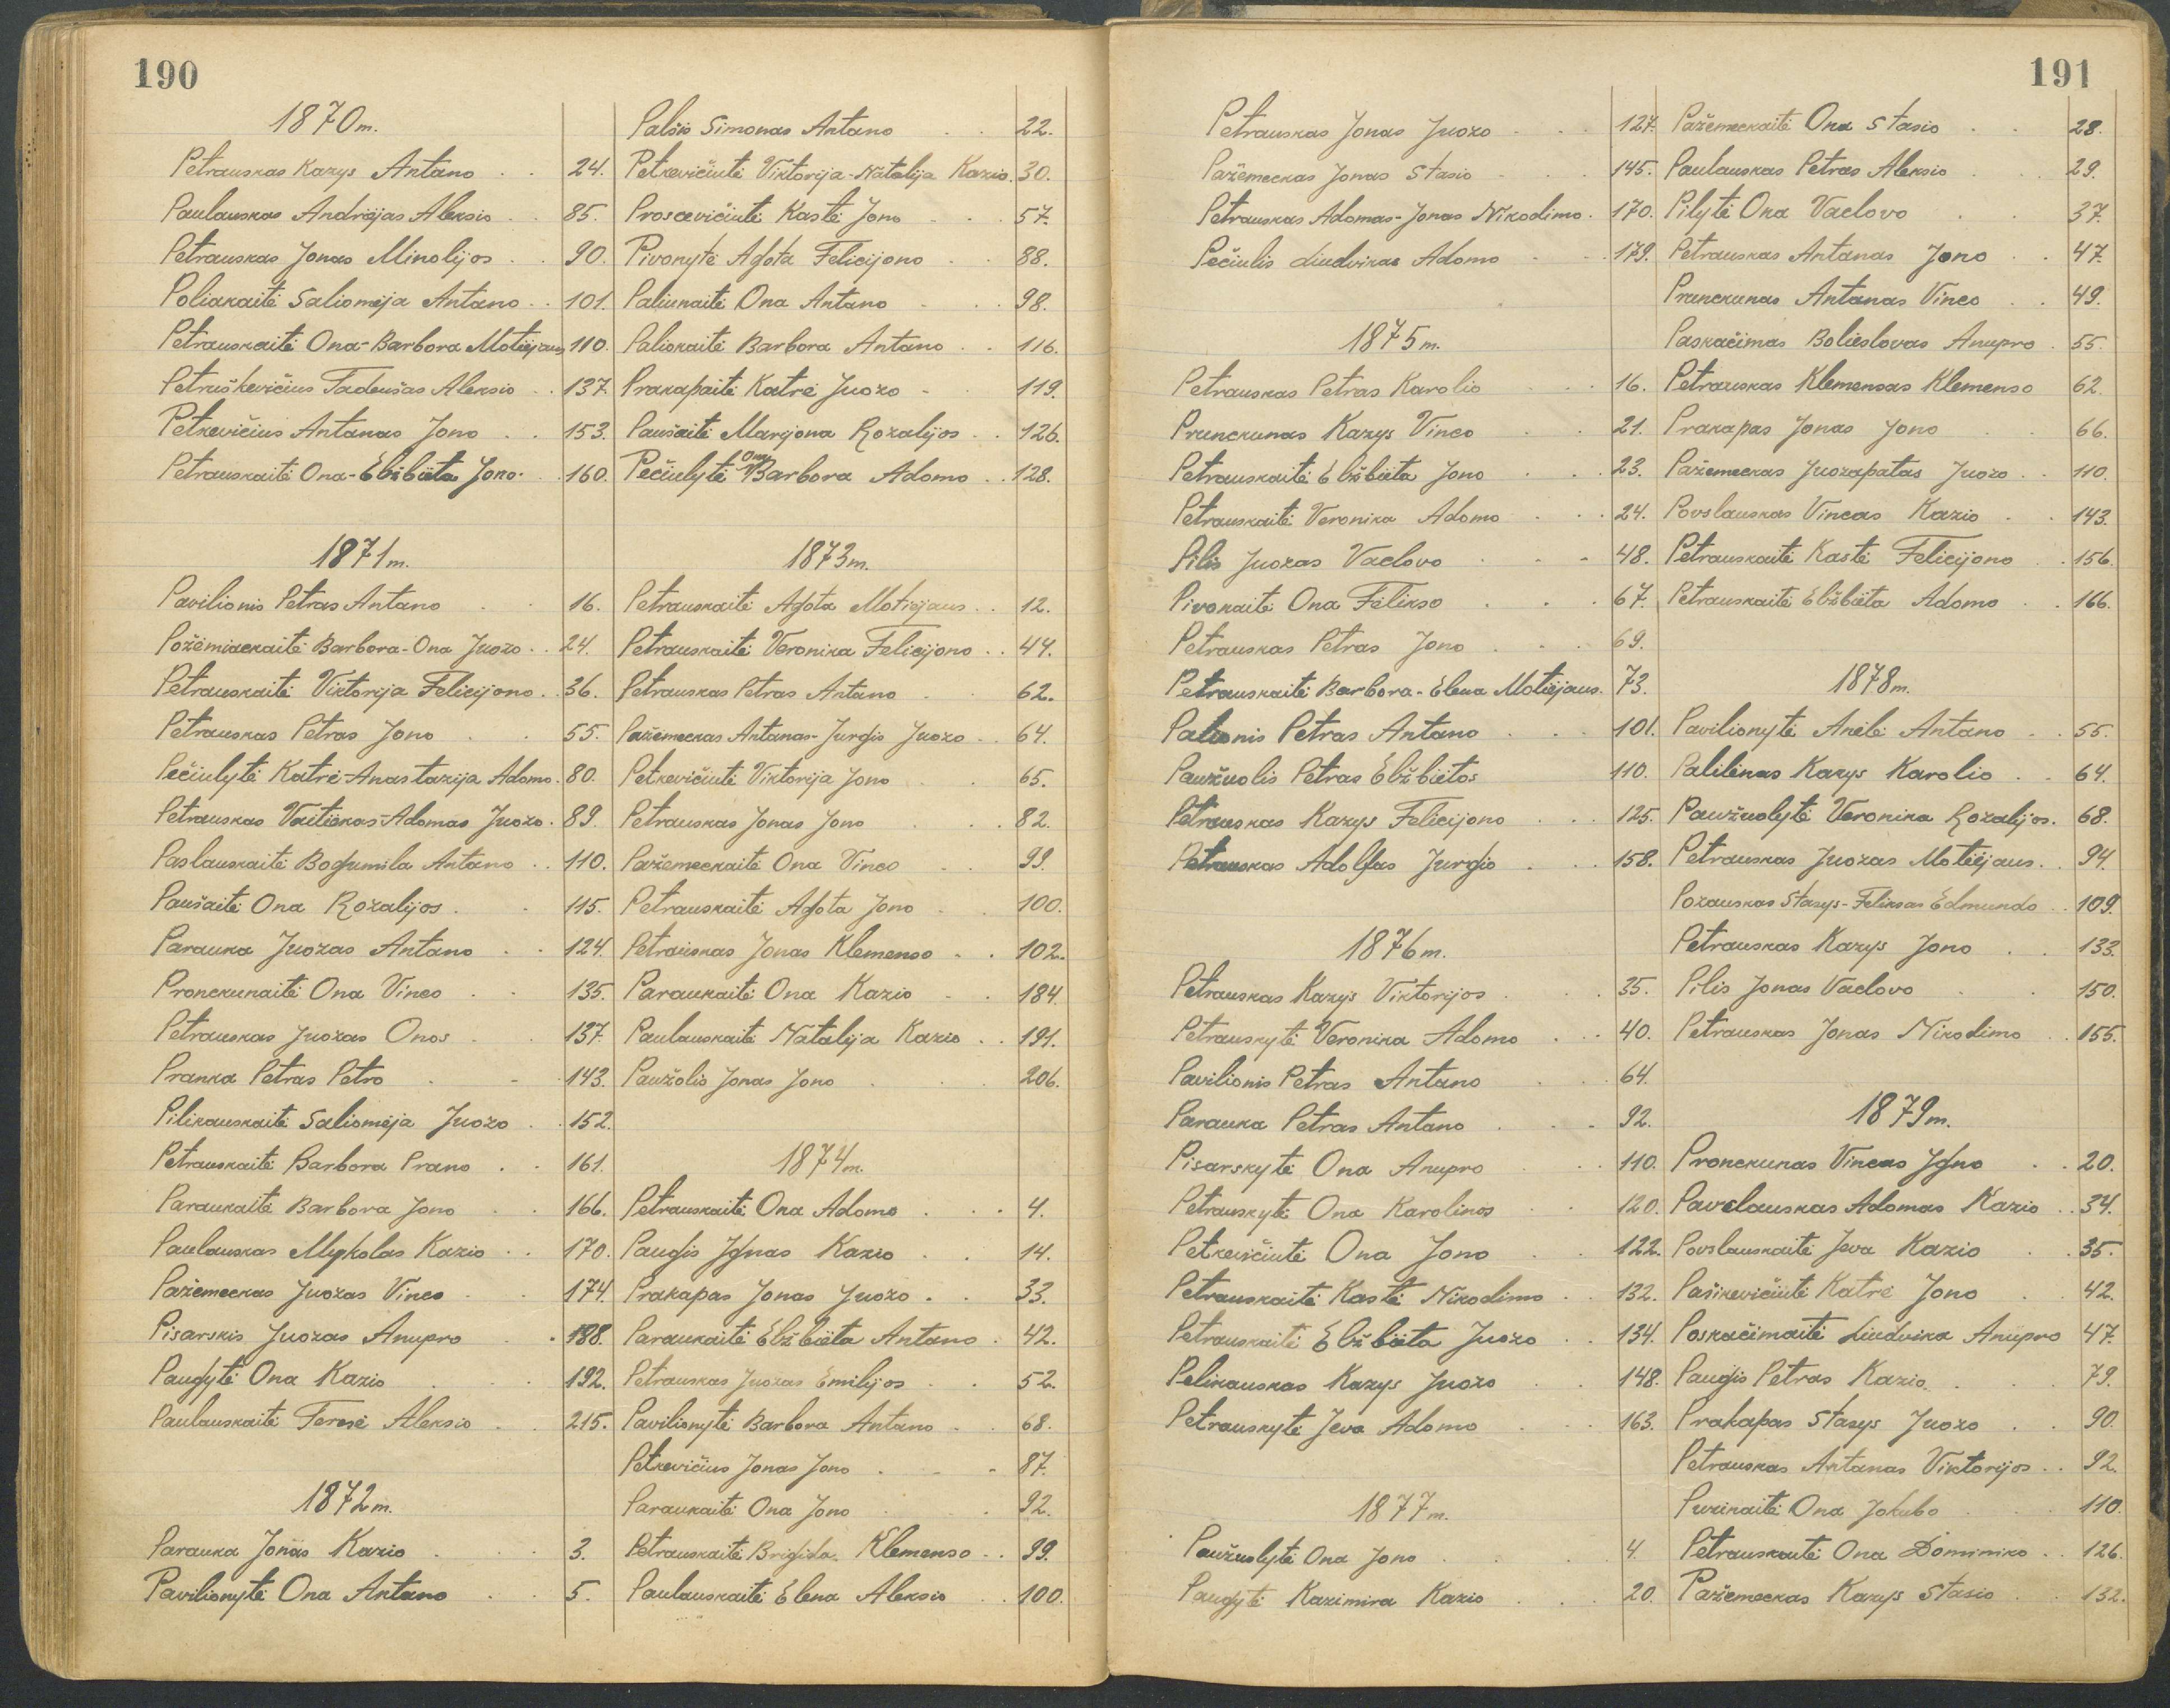 190
1870m.
Petrauskas Kazys Antano . . 24.
Paulauskas Andriejas Aleksio . . 85.
Petrauskas Jonas Minolijos . . 90.
Poliakaitė Saliomėja Antano . . 101.
Petrauskaitė Ona-Barbora Motiejaus 110.
Petruškevičius Tadeušas Aleksio . . 137.
Petkevičius Antanas Jono . . 153.
Petrauskaitė Ona-Elžbieta Jono . . 160.
1871m.
Pavilionis Petras Antano . . 16.
Požėmiackaitė Barbora-Ona Juozo . . 24.
Petrauskaitė Viktorija Felicijono . . 36.
Petrauskas Petras Jono . . 55.
Pečiulytė Katrė-Anastazija Adomo . 80.
Petrauskas Vaitiekas-Adomas Juozo . 89.
Paslauskaitė Bogumila Antano . . 110.
Paušaitė Ona Rozalijos . . 115.
Parauka Juozas Antano . . 124.
Pronckunaitė Ona Vinco . . 135.
Petrauskas Juozas Onos . . 137.
Pranka Petras Petro . . 143.
Pilikauskaitė Saliomėja Juozo . . 152.
Petrauskaitė Barbora Prano . . 161.
Paraukaitė Barbora Jono . . 166.
Paulauskas Mykolas Kazio . . 170.
Pažemeckas Juozas Vinco . . 174.
Pisarskis Juozas Anupro . . 188.
Paugytė Ona Kazio . . 192.
Paulauskaitė Teresė Aleksio . . 215.
1872m.
Parauka Jonas Kazio . . 3.
Pavilionytė Ona Antano . . 5.
Palšis Simonas Antano . . 22.
Petkevičiutė Viktorija-Natalija Kazio. 30.
Proscevičiutė Kastė Jono . . 57.
Pivonytė Agota Felicijono . . 88.
Paliunaitė Ona Antano . . 98.
Paliokaitė Barbora Antano . . 116.
Prakapaitė Katrė Juozo . 119.
Paušaitė Marijona Rozalijos . . 126.
Pečiulytė Ona Barbora Adomo . . 128.
1873m.
Petrauskaitė Agota Motiejaus . . 12.
Petrauskaitė Veronika Felicijono . . 44.
Petrauskas Petras Antano . . 62.
Pažemeckas Antanas-Jurgis Juozo . . 64.
Petkevičiutė Viktorija Jono . . 65.
Petrauskas Jonas Jono . . 82.
Pažemeckaitė Ona Vinco . . 99.
Petrauskaitė Agota Jono . . 100.
Petrauskas Jonas Klemenso . . 102.
Paraukaitė Ona Kazio . . 184.
Paulauskaitė Natalija Kazio . . 191.
Paužolis Jonas Jono . . 206.
1874m.
Petrauskaitė Ona Adomo . . . 4.
Paugis Ignas Kazio . . 14.
Prakapas Jonas Juozo . . 33.
Paraukaitė Elžbieta Antano . 42.
Petrauskas Juozas Emilijos . . 52.
Pavilionytė Barbora Antano . . 68.
Petkevičius Jonas Jono . . . 87.
Paraukaitė Ona Jono . . 92.
Petrauskaitė Brigida Klemenso . . 99.
Paulauskaitė Elena Aleksio . . 100.
191
Petrauskas Jonas Juozo . . . 127.
Pažemeckas Jonas Stasio . . . 145.
Petrauskas Adomas-Jonas Nikodimo . 170.
Pečiulis Liudvikas Adomo . . . 179.
1875m.
Petrauskas Petras Karolio . . . 16.
Prunckunas Kazys Vinco . . 21.
Petrauskaitė Elžbieta Jono . . . 23.
Petrauskaitė Veronika Adomo . . . 24.
Pilis Juozas Vaclovo . . . 48.
Pivokaitė Ona Felikso . . . 67.
Petrauskas Petras Jono . . . 69.
Petrauskaitė Barbora-Elena Motiejaus. 73.
Palionis Petras Antano . . . 101.
Paužuolis Petras Elžbietos 110.
Petrauskas Kazys Felicijono . . . 125.
Petrauskas Adolfas Jurgio . . . 158.
1876m.
Petrauskas Kazys Viktorijos . . . 35.
Petrauskytė Veronika Adomo . . . 40.
Pavilionis Petras Antano . . . 64.
Parauka Petras Antano . . . 92.
Pisarskytė Ona Anupro . . . 110.
Petrauskytė Ona Karolinos . . 120.
Petkevičiutė Ona Jono . . 122.
Petrauskaitė Kastė Nikodimo . . 132.
Petrauskaitė Elžbieta Juozo . . 134.
Pelikauskas Kazys Juozo . . 148.
Petrauskytė Jeva Adomo . . 163.
1877m.
Paužuolytė Ona Jono . . . 4.
Paugytė Kazimira Kazio . . . 20.
Pažemeckaitė Ona Stasio . . 28.
Paulauskas Petras Aleksio . . 29.
Pilytė Ona Vaclovo . . 37.
Petrauskas Antanas Jono . . 47.
Prunckunas Antanas Vinco . . 49.
Paskačimas Bolieslovas Anupro . 55.
Petrauskas Klemensas Klemenso 62.
Prakapas Jonas Jono . . 66.
Pažemeckas Juozapatas Juozo . . 110.
Povslauskas Vincas Kazio . . 143.
Petrauskaitė Kastė Felicijono . . 156.
Petrauskaitė Elžbieta Adomo . . 166.
1878m.
Pavilionytė Anelė Antano . . 55.
Palilėnas Kazys Karolio . . 64.
Paužuolytė Veronika Rozalijos. 68.
Petrauskas Juozas Motiejaus . . 94.
Pozauskas Stasys-Feliksas Edmundo . . 109.
Petrauskas Kazys Jono . . 133.
Pilis Jonas Vaclovo . . 150.
Petrauskas Jonas Nikodimo . . 155.
1879m.
Pronckunas Vincas Igno . . 20.
Pavslauskas Adomas Kazio . . 34.
Povslauskaitė Jeva Kazio . . 35.
Paškevičiutė Katrė Jono . . 42.
Poskačimaitė Liudvika Anupro 47.
Paugis Petras Kazio . . . 79.
Prakapas Stasys Juozo . . 90.
Petrauskas Antanas Viktorijos . . 92.
Ona Jokubo . . 110.
Petrauskaitė Ona Dominiko . . 126.
Pažemeckas Kazys Stasio . . 132.